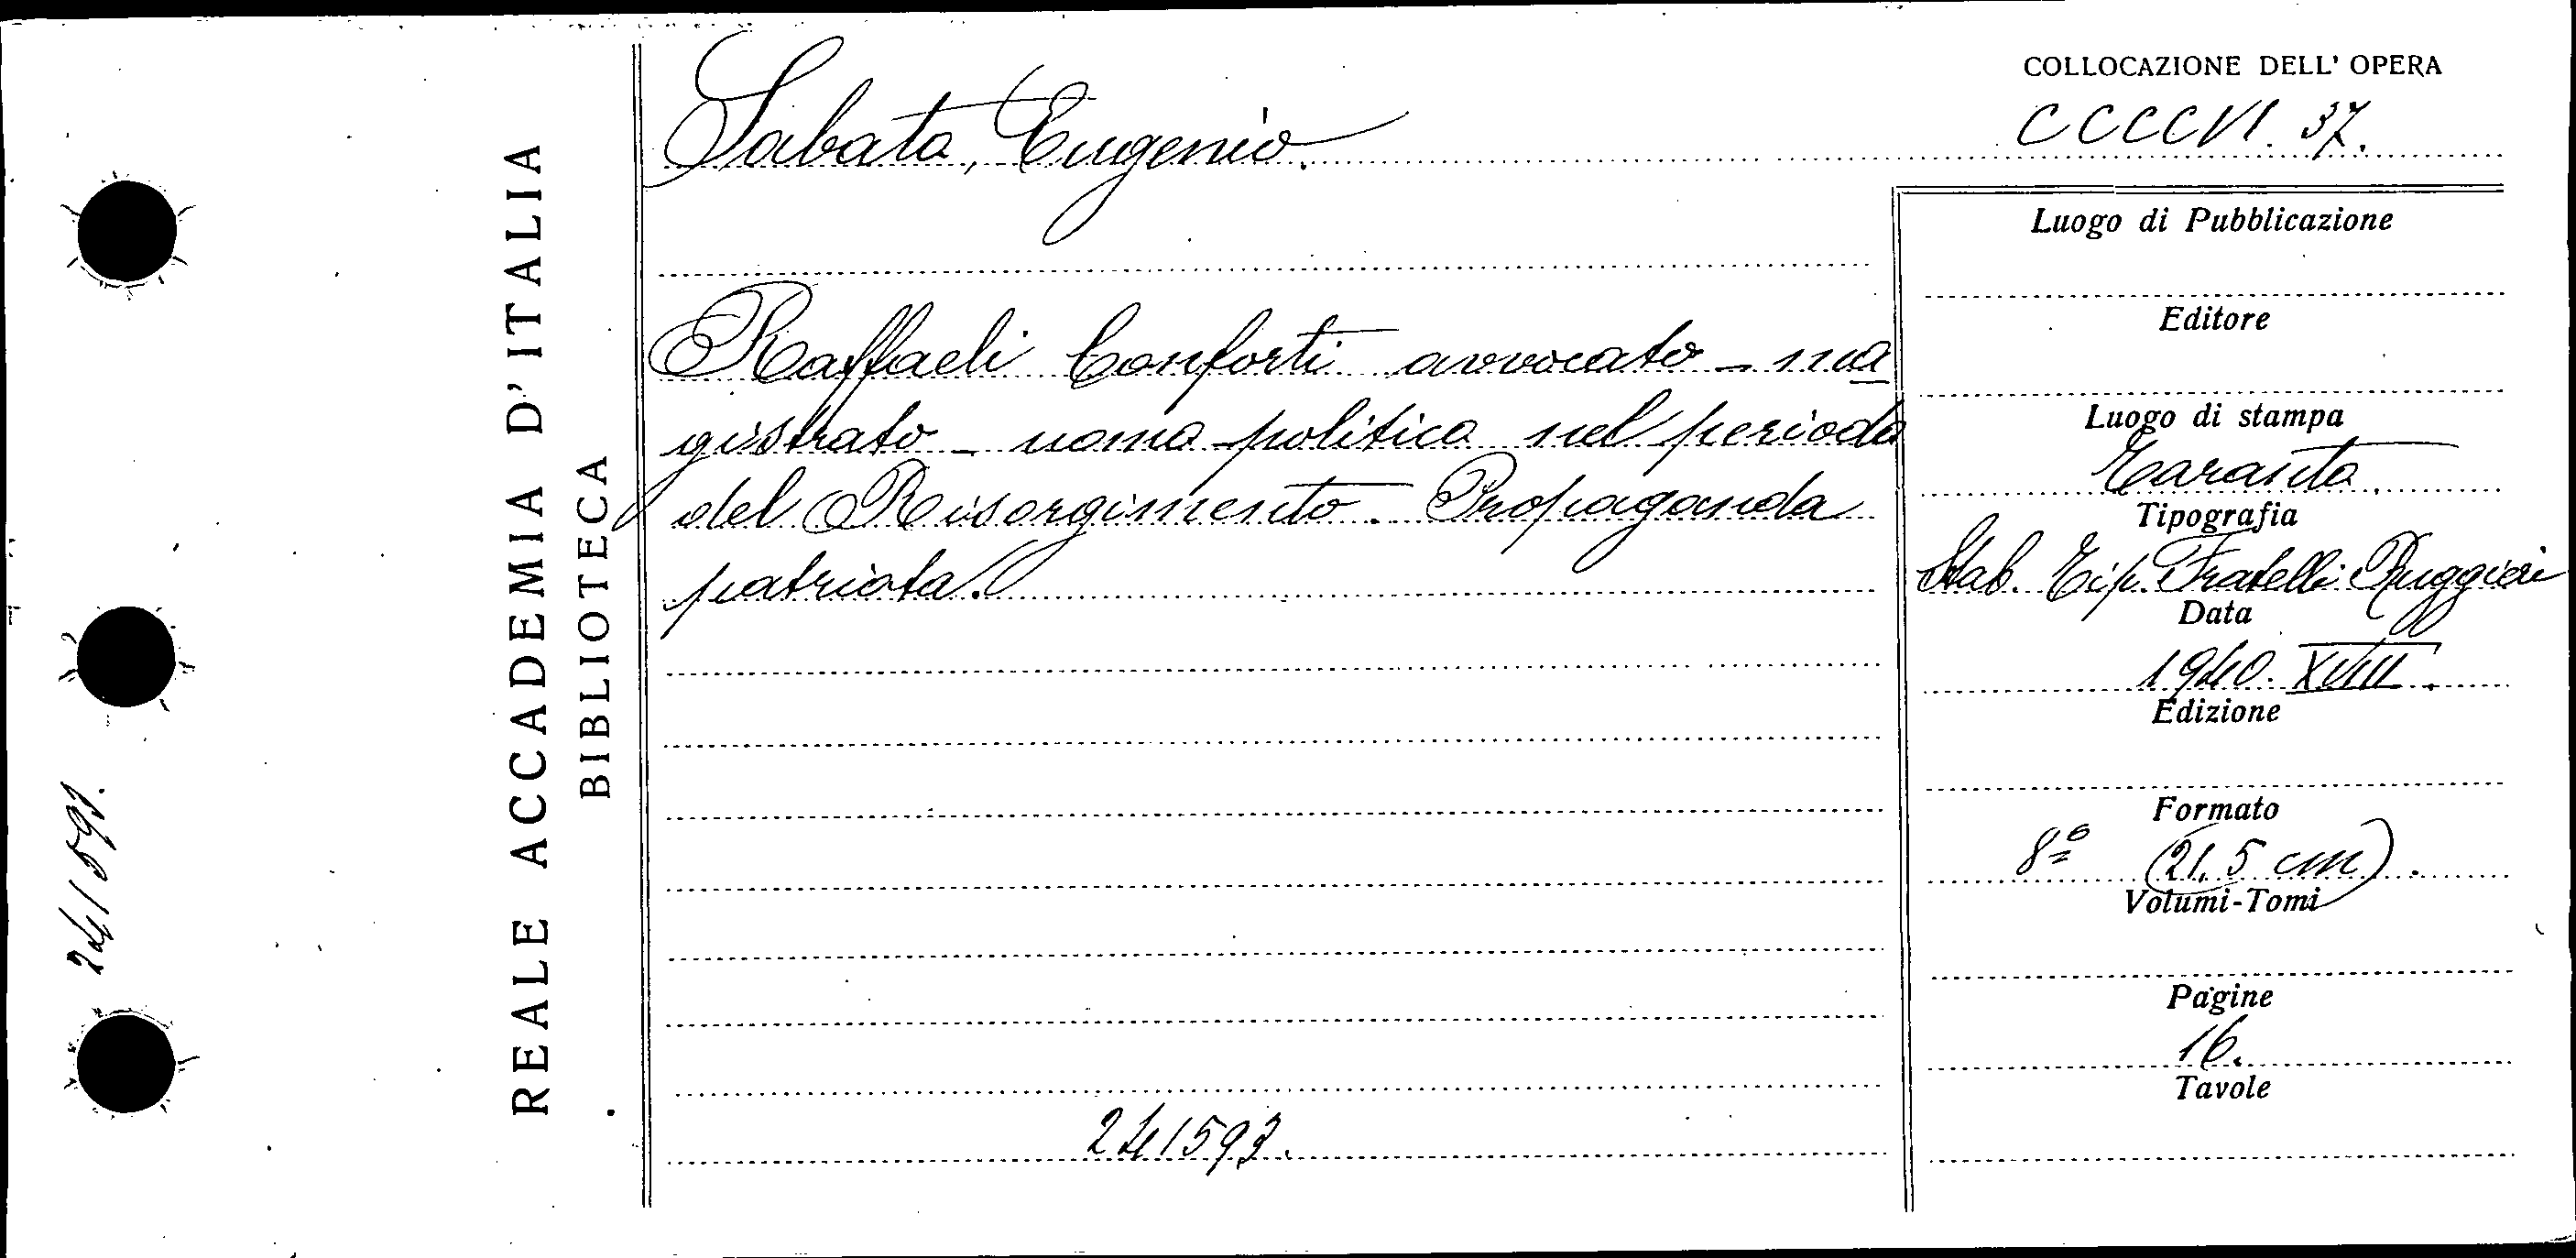 COLLOCAZIONE DELL' OPERA
Sabato, Eugenio.
CCCCVI. 37.
Raffaeli Conforti avvocato - ma
gistrato - uomo politico nel periodo
del Risorgimento. Propaganda
patriota.
241593.
Luogo di Pubblicazione
Editore
Luogo di stampa
Taranto.
Tipografia
Stab. Tip. Fratelli Ruggieri
Data
1940. XVIII.
Edizione
Formato
8º (21,5 cm).
Volumi-Tomi
Pagine
16.
Tavole
REALE ACCADEMIA D'ITALIA
BIBLIOTECA
241593.